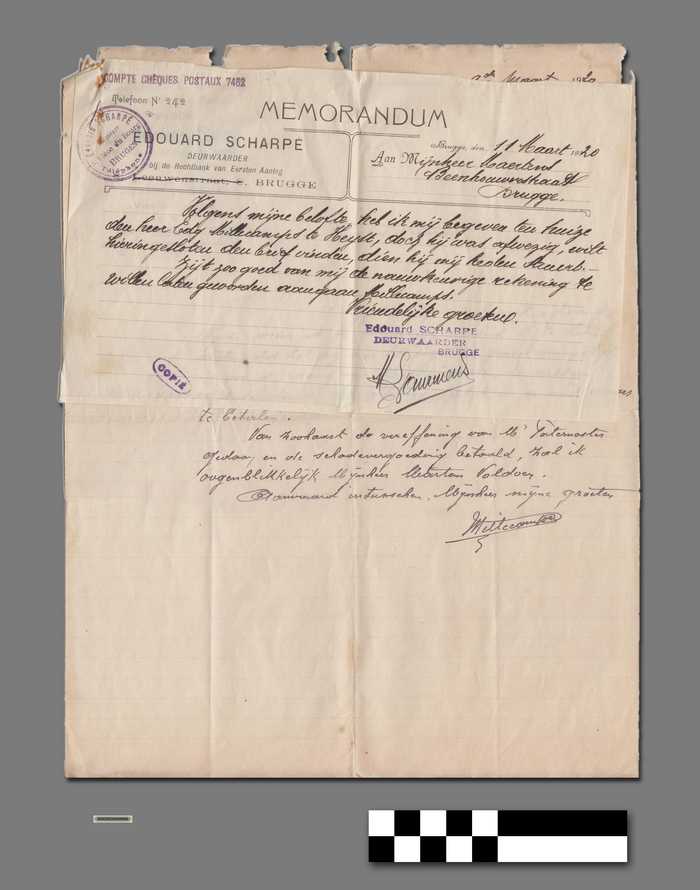 COMPTE CHÈQUES POSTAUX 7482
Maart 1920
Telefoon Nr 242
MEMORANDUM
EDOUARD SCHARPÉ
DEURWAARDER
bij de Rechtbank van Eersten Aanleg
BRUGGE
Brugge, den 11 Maart 1920
Aan Mijnheer Maertens
Beenhouwersstraat
Brugge.
Volgens mijne belofte heb ik mij begeven ten huize
den heer Edg Millecamps te Heyst, doch hij was afwezig, wilt
hieringesloten den brief vinden, dien hij mij heden stuurt.-
Zijt zoo goed van mij de nauwkeurige rekening te
willen laten geworden aangaan Millecamps.
Vriendelijke groeten.
Edouard SCHARPÉ
DEURWAARDER
BRUGGE
COPIE
te betalen.
Van zoohaast de vereffening van Mr Paternoster
gedaan en de schadevergoeding betaald, zal ik
oogenblikkelijk Mijnheer Maertens voldoen.
Aanvaard intusschen, Mijnheer mijne groeten
Millecamps